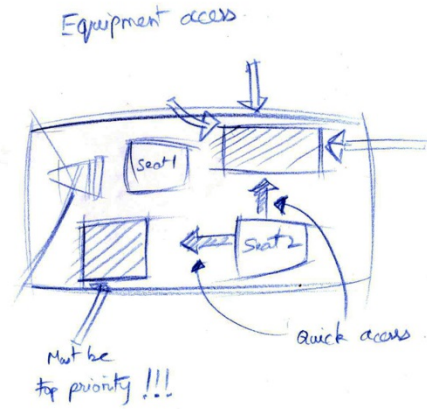 Equipment access
Seat1
Seat2
Quick access
Must be
top priority !!!